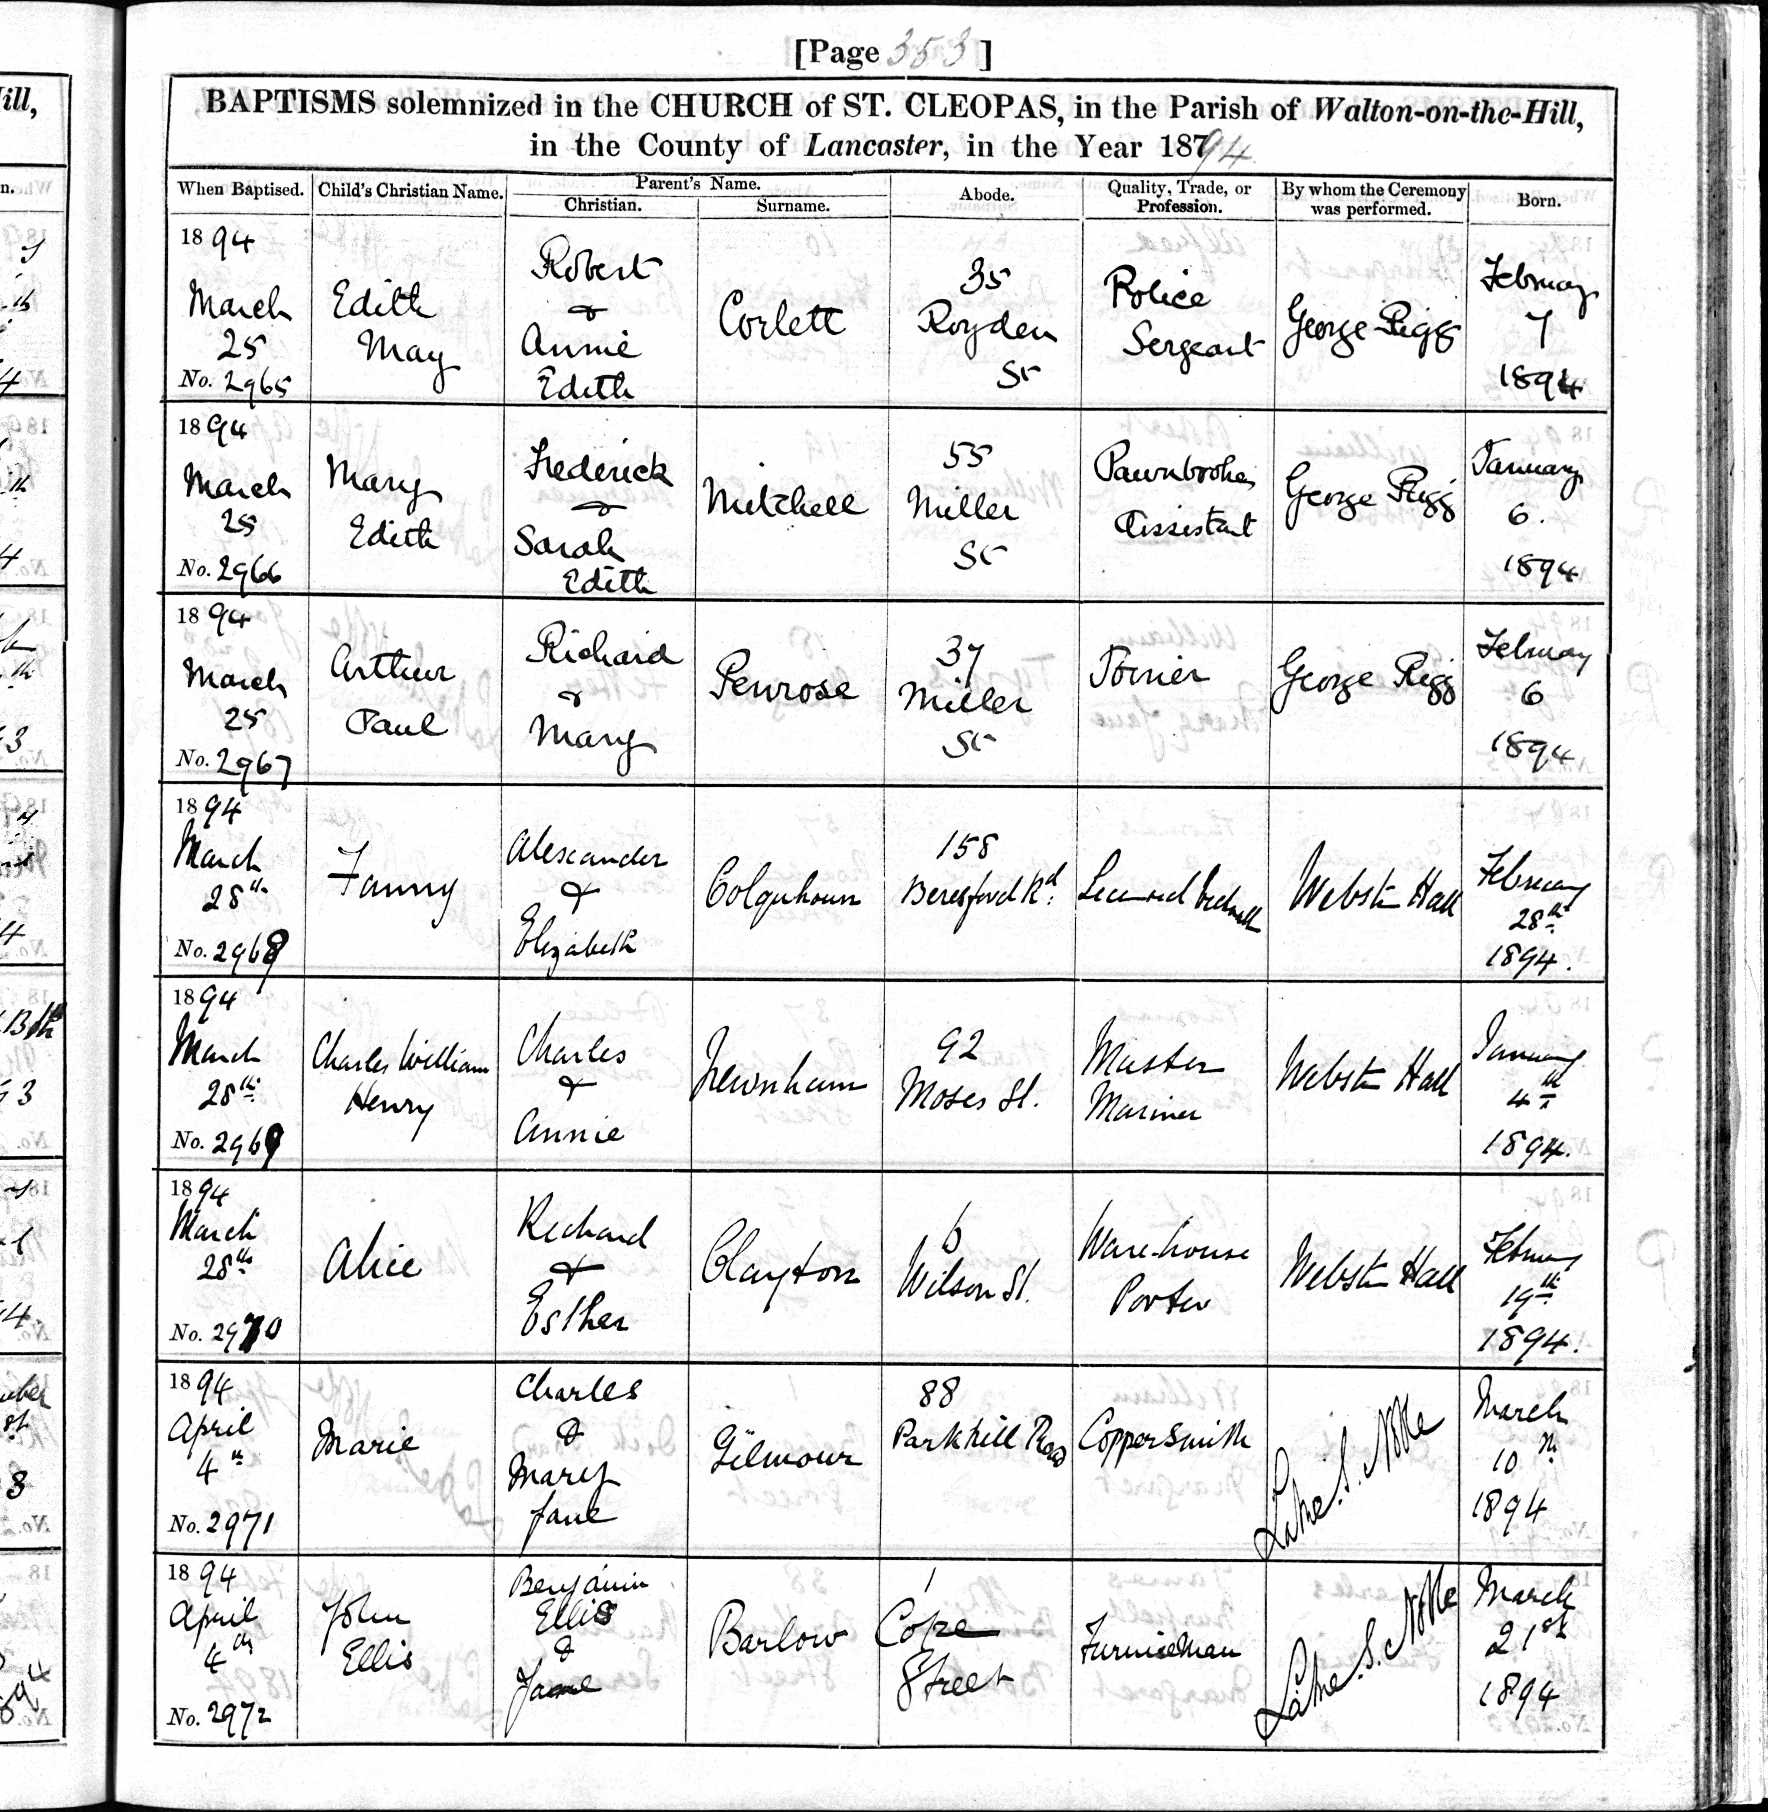 [Page 353]
BAPTISMS solemnized in the CHURCH of ST. CLEOPAS, in the Parish of Walton-on-the-Hill,
in the County of Lancaster, in the Year 1894
When Baptised. Child's Christian Name. Parent's Name. Christian. Surname. Abode. Quality, Trade, or Profession. By whom the Ceremony was performed. Born.
1894
March
25
No. 2965
Edith
May
Robert
&
Annie
Edith
Corlett
35
Royden
St
Police
Sergeant
George Rigg
February
7
1894
1894
March
25
No. 2966
Mary
Edith
Frederick
&
Sarah
Edith
Mitchell
55
Miller
St
Pawnbroker
Assistant
George Rigg
January
6.
1894
1894
March
25
No. 2967
Arthur
Paul
Richard
&
Mary
Penrose
37
Miller
St
Joiner
George Rigg
February
6
1894
1894
March
28th
No. 2968
Fanny
Alexander
&
Elizabeth
Colquhoun
158
Beresford Rd.
Licensed
Webster Hall
February
28th
1894.
1894
March
28th
No. 2969
Charles William
Henry
Charles
&
Annie
Newnham
92
Moses St.
Master
Mariner
Webster Hall
January
4th
1894.
1894
March
28th
No. 2970
Alice
Richard
&
Esther
Clayton
6
Wilson St.
Warehouse
Porter
Webster Hall
February
19th
1894.
1894
April
4th
No. 2971
Marie
Charles
&
Mary
Jane
Gilmour
88
Parkhill Road
Coppersmith
Luke. S. Noble
March
10th
1894
1894
April
4th
No. 2972
John
Ellis
Benjamin
Ellis
&
Jane
Barlow
1
Cope
Street
Furnaceman
Luke. S. Noble
March
21st
1894